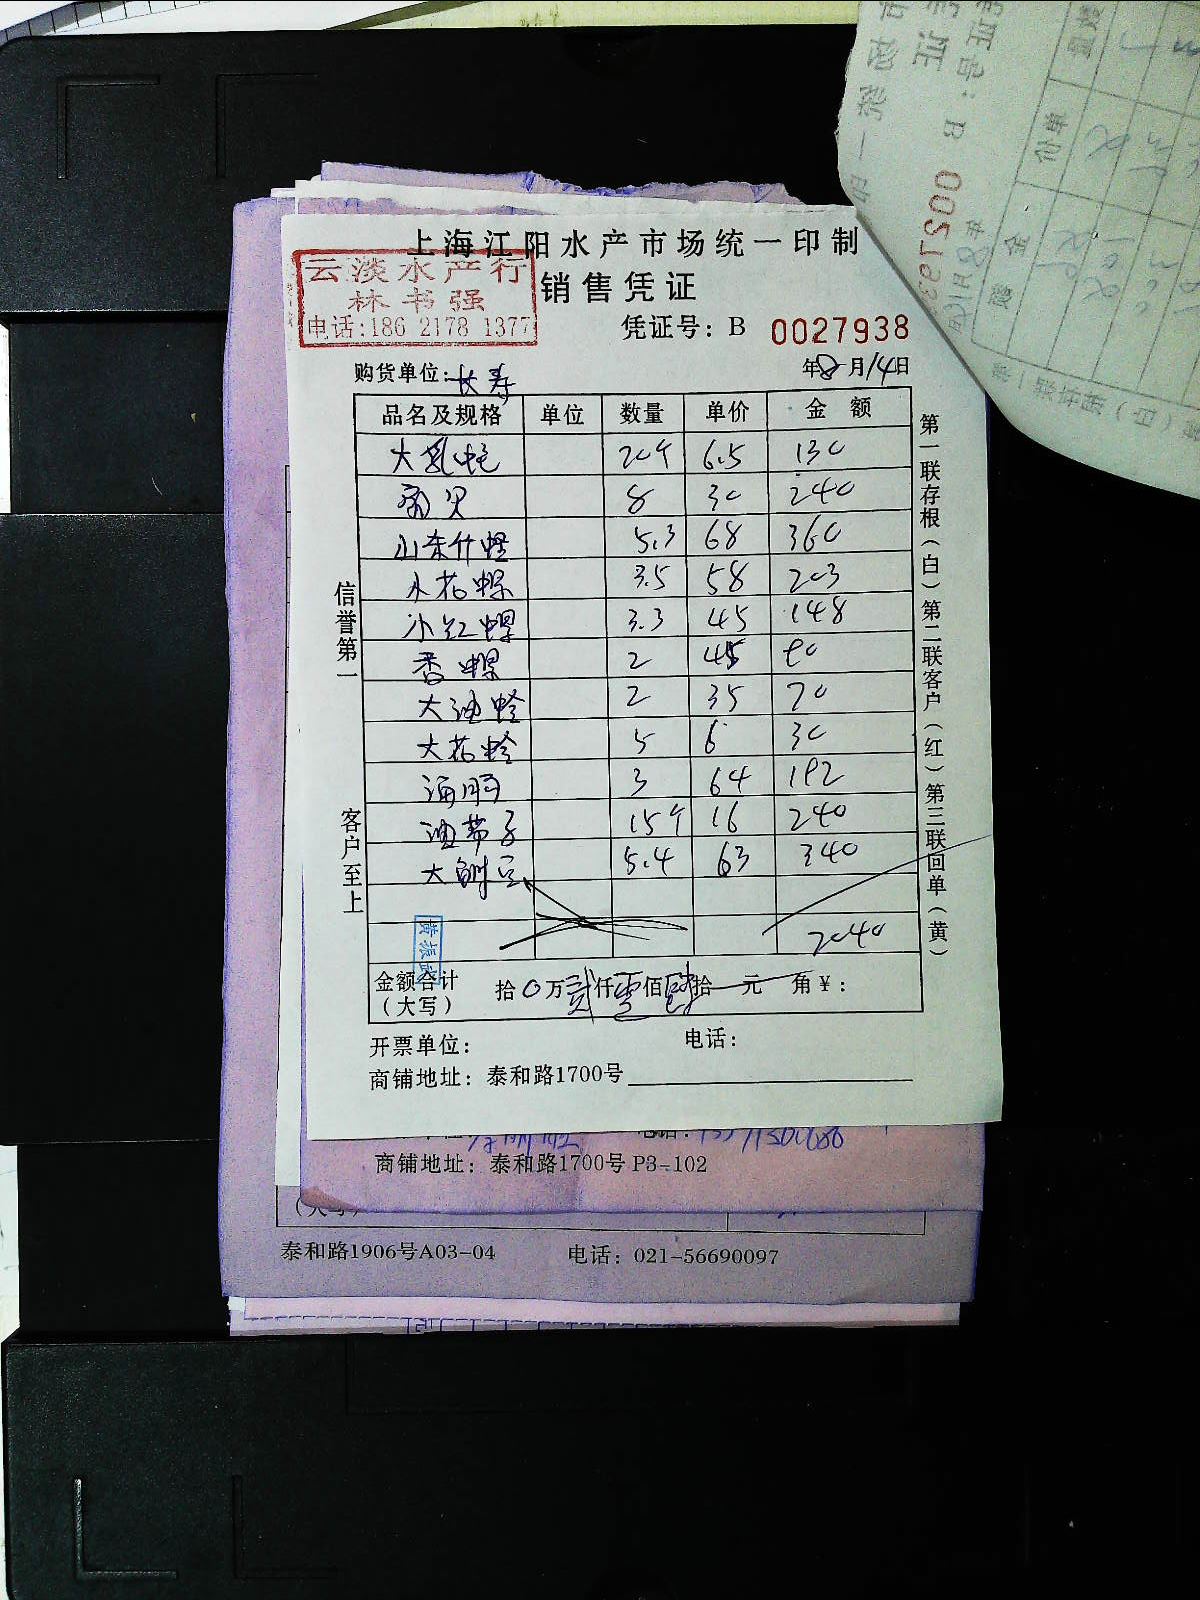 上海江阳水产市场统一印制
云淡水产行
林书强
电话:186 2178 1377
销售凭证
凭证号: B 0027938
购货单位: 长寿
年 8 月 14 日
品名及规格 单位 数量 单价 金额
大乳蚝 20个 6.5 130
8 30 240
山东竹蛏 5.3 68 360
水花螺 3.5 58 203
小红螺 3.3 45 148
香螺 2 45 90
大油蛤 2 35 70
大花蛤 5 6 30
海肠 3 64 192
油带子 15个 16 240
大鲍豆 5.4 63 340
2040
黄振
金额合计
(大写)
拾0万贰仟零佰肆拾 元 角 ¥:
开票单位: 电话:
商铺地址: 泰和路1700号
信誉第一
客户至上
第一联存根(白)第二联客户(红)第三联回单(黄)
商铺地址: 泰和路1700号 P3-102
(大写)
泰和路1906号A03-04 电话: 021-56690097
单价
金